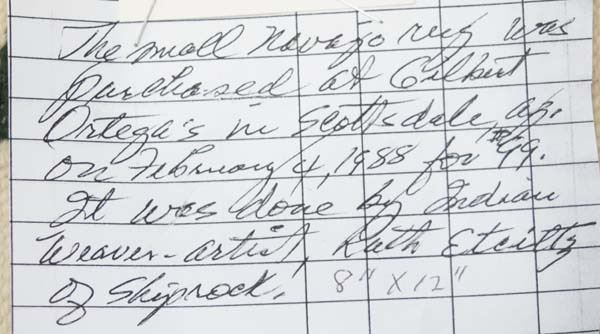 The small Navajo rug was
purchased at Gilbert
Ortega's in Scottsdale, az.
on February 4, 1988 for $99.
It was done by Indian
Weaver-artist, Ruth Etcitty
of Shiprock. 8" x 12"